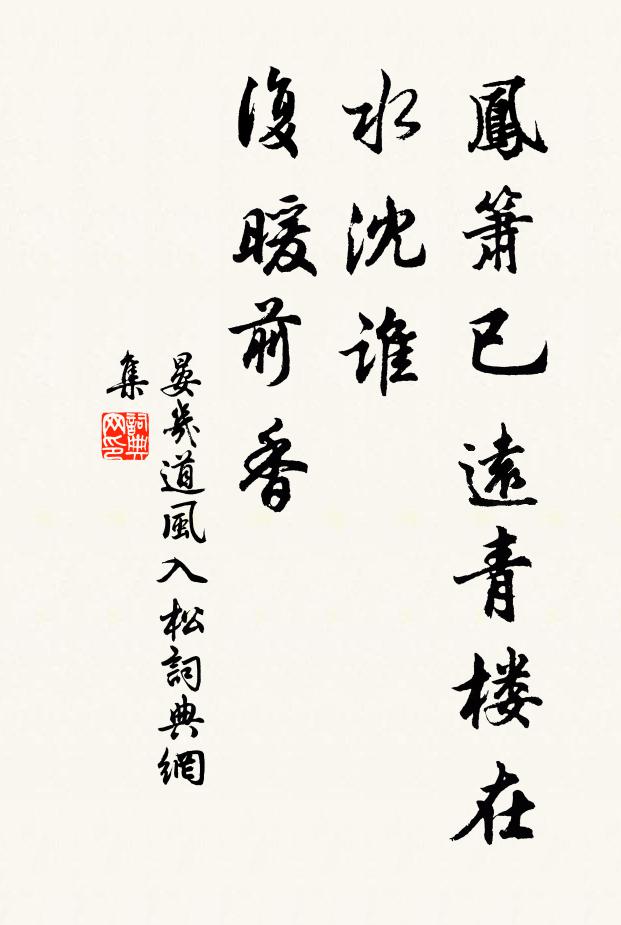 鳳簫已遠青楼在
水沈誰
復暖前香
晏幾道風入松詞典網
集
詞典
网印